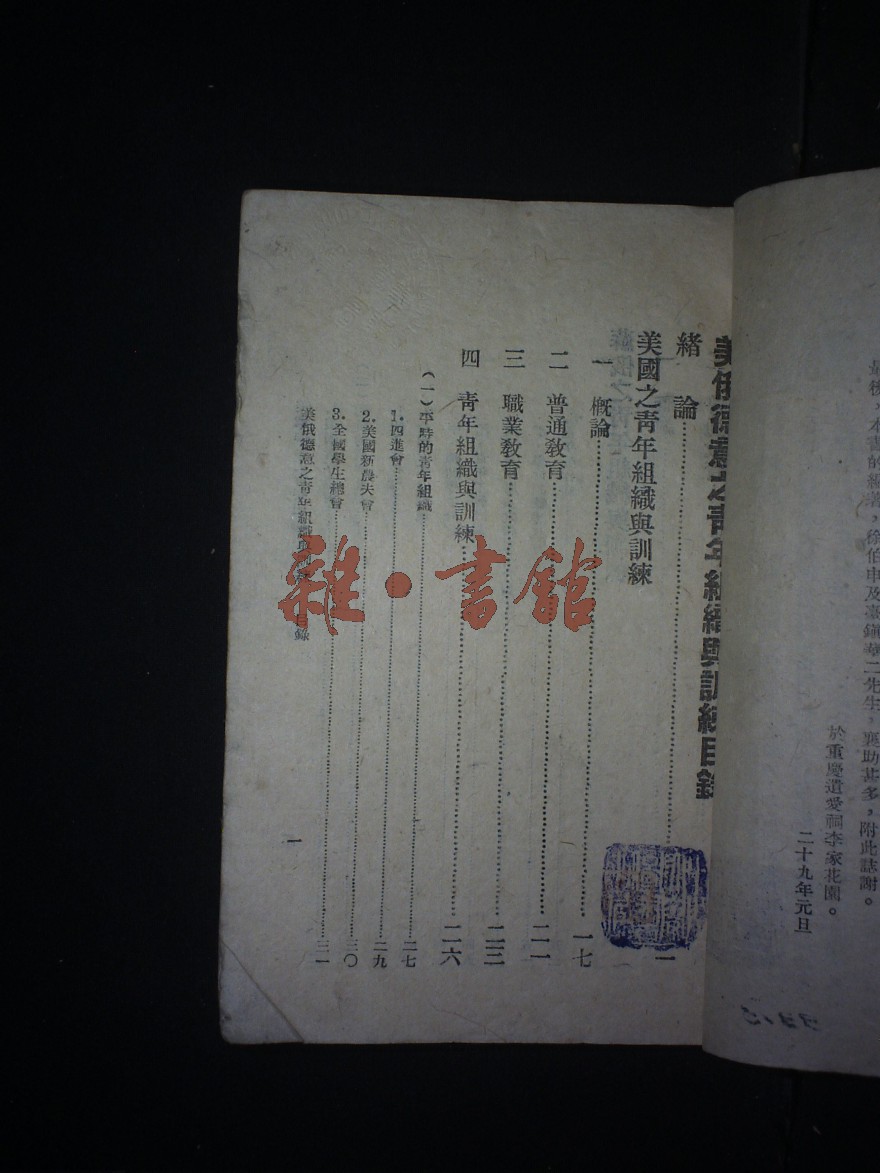 最後，本書的編著，徐伯申及
二先生，襄助甚多，附此誌謝。
於重慶遺愛祠李家花園。
二十九年元旦
美俄德意之青年組織與訓練目錄
緒論……一
美國之青年組織與訓練
一 概論……一七
二 普通敎育……二一
三 職業敎育……二三
四 靑年組織與訓練……二六
（一）平時的靑年組織……二七
1.四進會……二九
2.美國新農夫會……三〇
3.全國學生總會……三一
美俄德意之靑年組織與訓練 目錄
一
雜·書館